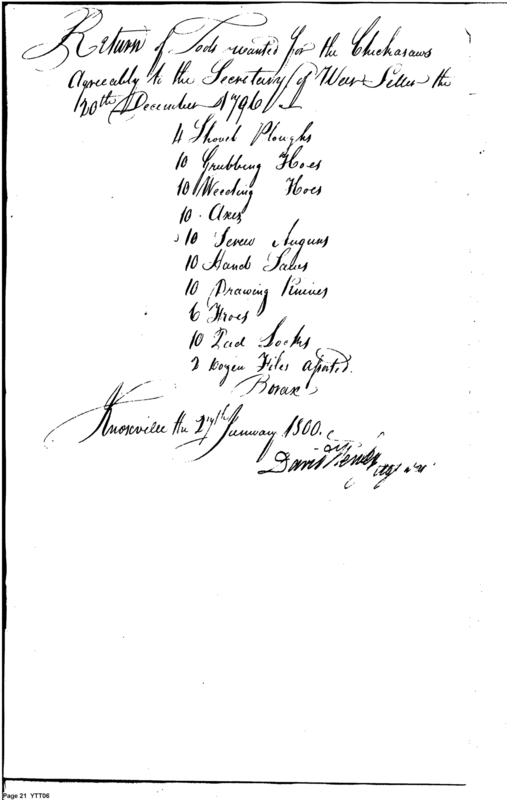 Return of Tools wanted for the Chickasaws
Agreeably to the Secretary of War Letter the
20th December 1796
4 Shovel Ploughs
10 Grubbing Hoes
10 Weeding Hoes
10 Axes
10 Screw Augurs
10 Hand Saws
10 Drawing Knives
6 Froes
10 Pad Locks
2 Dozen Files asorted.
Borax
Knoxville the 27th January 1800.
David Henly
Page 21 YTT06